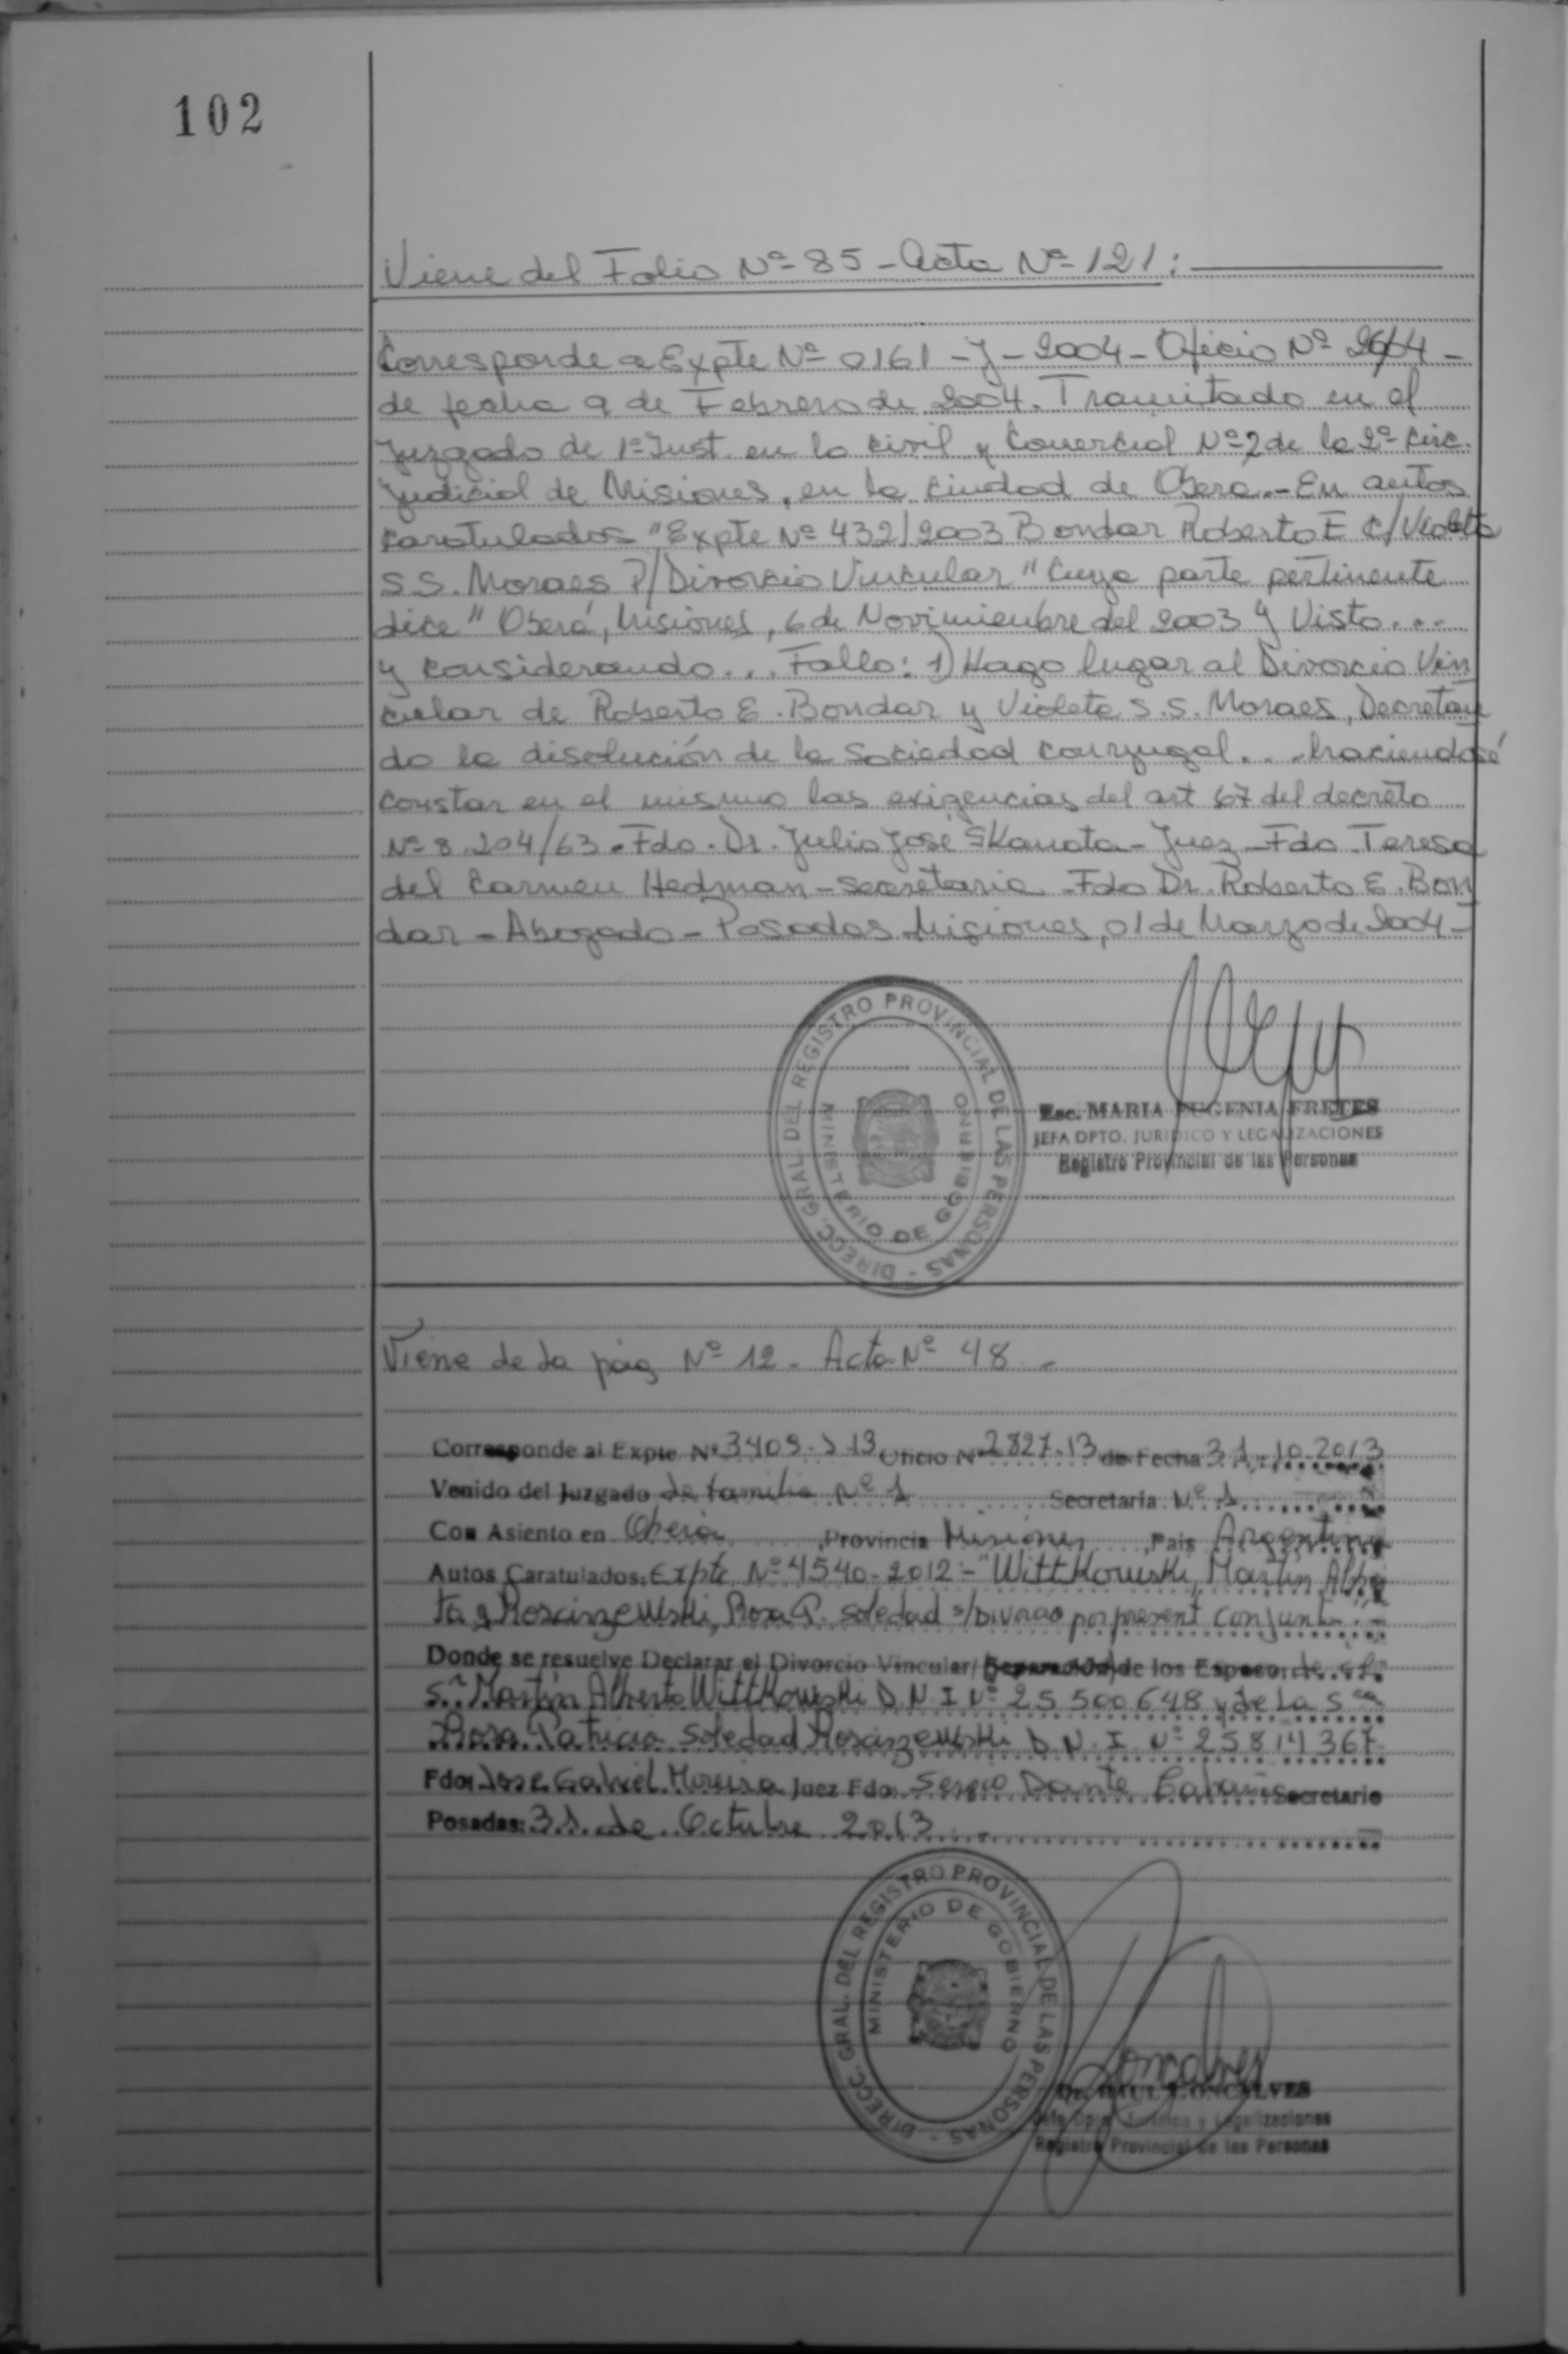 102
Viene del Folio Nº 85 - Acta Nº 121:
Corresponde a Expte Nº 0161 - J - 2004 - Oficio Nº 26/04 -
de fecha 9 de Febrero de 2004. Tramitado en el
Juzgado de 1º Inst. en lo civil y Comercial Nº 2 de la 2º Circ.
Judicial de Misiones, en la Ciudad de Obera. - En autos
caratulados "Expte Nº 432/2003 Bondar Roberto E C/ Violeta
S.S. Moraes P/ Divorcio Vincular" Cuya parte pertinente
dice "Oberá, Misiones, 6 de Novimienbre del 2003 Y Visto...
y considerando... Fallo: 1) Hago lugar al Divorcio Vin
cular de Roberto E. Bondar y Violeta S.S. Moraes, Decretan
do la disolución de la Sociedad conyugal... haciendosé
constar en el mismo las exigencias del art 67 del decreto
Nº 8.204/63. Fdo. Dr. Julio José Skanata - Juez - Fdo Teresa
del Carmen Hedman - Secretaria - Fdo Dr. Roberto E. Bon
dar - Abogado - Posadas Misiones, 01 de Marzo de 2004 -
DIRECC. GRAL. DEL REGISTRO PROVINCIAL DE LAS PERSONAS -
MINISTERIO DE GOBIERNO
Esc. MARIA EUGENIA FRETES
JEFA DPTO. JURIDICO Y LEGALIZACIONES
Registro Provincial de las Personas
Viene de la pág Nº 12 - Acta Nº 48 -
Corresponde al Expte Nº 3409-J-13 Oficio Nº 2827-13 de Fecha 31-10-2013
Venido del Juzgado de familia Nº 1 Secretaria Nº 1
Con Asiento en Oberá, Provincia Misiones, Pais Argentina
Autos Caratulados: Expte Nº 4540-2012 - "Wittkowski, Martin Alber
to y Roscinzewski, Rosa P. Soledad s/Divorcio por present conjunt
Donde se resuelve Declarar el Divorcio Vincular/ (Separación) de los Esposo: de el
Sr Martín Alberto Wittkowski D.N.I Nº 25500648 y de La Sra
Rosa Patricia Soledad Roscinzewski D.N.I. Nº 25814367
Fdo: Jose Gabriel Moreira Juez Fdo: Sergio Dante Secretario
Posadas: 31 de Octubre 2013
DIRECC. GRAL. DEL REGISTRO PROVINCIAL DE LAS PERSONAS -
MINISTERIO DE GOBIERNO
Goncalves
Dr. RAUL GONCALVES
Jefe Dpto. Juridico y Legalizaciones
Registro Provincial de las Personas